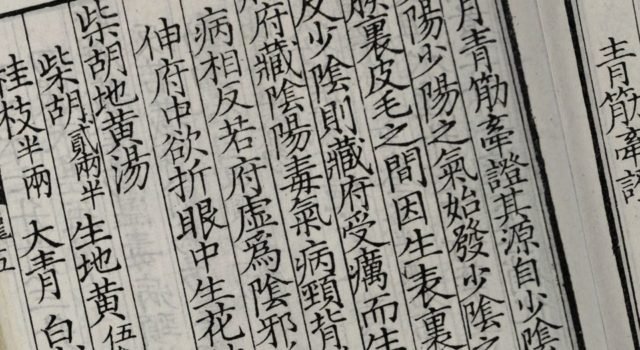 青筋牽證
青筋牽證其源自少陰
陽少陽之氣始發少陰之
裏皮毛之間因生表裏
反少陰則藏府受癘而生
府藏陰陽毒氣病頸背
病相反若府虛爲陰邪
伸府中欲折眼中生花
柴胡地黃湯
柴胡貳兩半 生地黃伍
桂枝半兩 大青 白